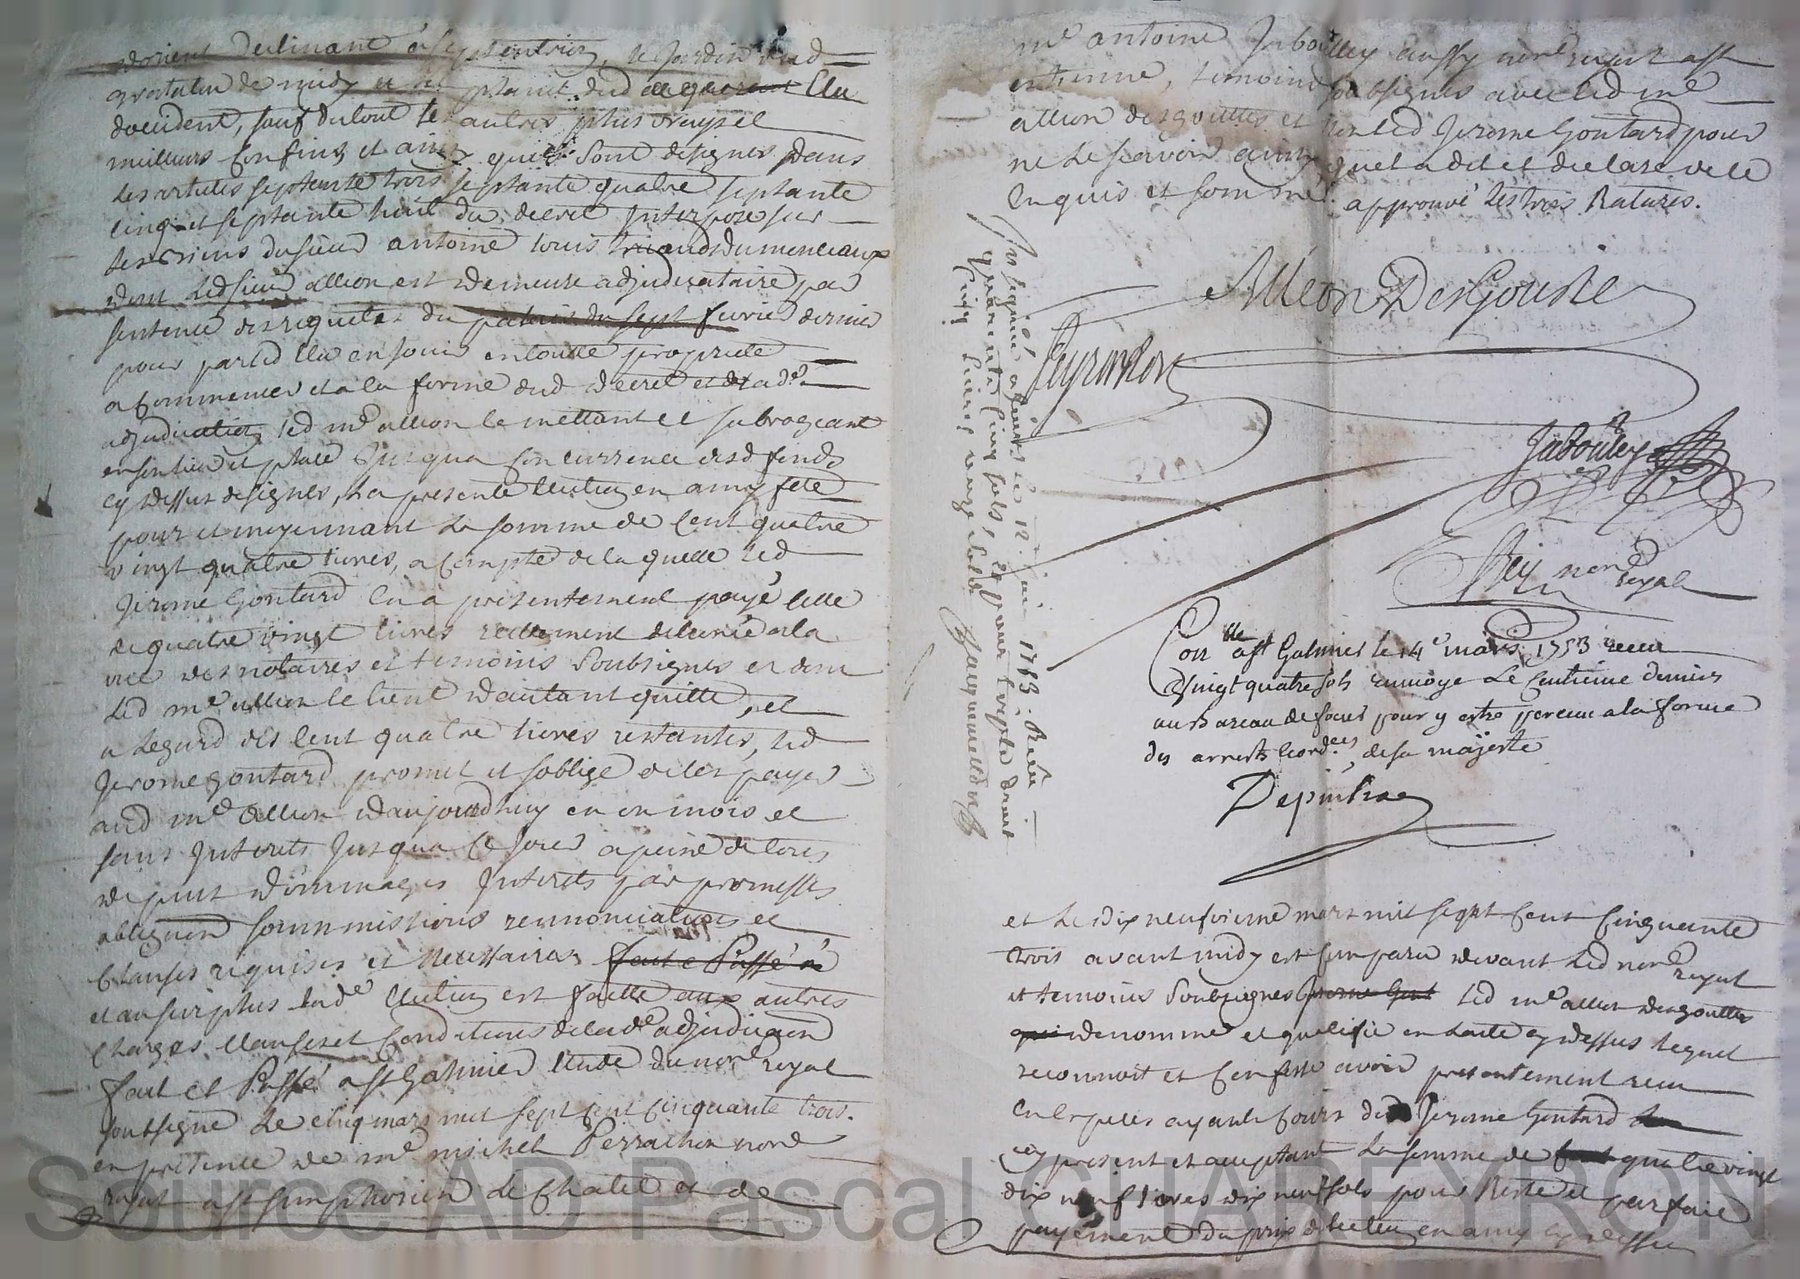 dorient declinant à septentrion, le jardin dud
gratalen de midy et
doccident, sauf du tout les autres plus vrays et
meilleurs confins et ainsy quils sont designes dans
les articles septante trois septante quatre septante
cinq et septante huit du decret interposé sur
les biens du sieur antoine louis
dont led sieur alleon est demeuré adjudicataire par
sentence des requetes du palais du sept fevrier dernier
pour par led elu en jouir en toutte proprieté
a commencer et a la forme dud decret et de lad^e
adjudication led m^e alleon le mettant et subrogeant
en son lieu et place jusqua concurrence desd fonds
cy dessus designés, la presente election en amy fete
pour et moyennant la somme de cent quatre
vingt quatre livres, a compte de laquelle led
Jerome Gontard en a presentement payé celle
de quatre vingt livres reellement delivrée a la
vue des notaires et temoins soubsignes et dont
led m^e alleon le tient dautant quitte, et
a legard des cent quatre livres restantes, led
Jerome gontard promet et soblige de les payer
aud m^e alleon daujourdhuy en un mois et
sans interets jusqua ce jour a peine de tous
depens dommages interets par promesses
obligaon soummissions renonciations et
clauses requises et necessaires fait et Passé a
et au surplus lad^e election est faitte aux autres
charges clauses et conditions de lad^e adjudicaon
fait et Passé a st Galmier etude du nor^e royal
soubsigné le cinq mars mil sept cent cinquante trois.
en presence de m^e michel Perrachon nor^e
royal a st simphorien le chatel et de
m^e antoine Jaboulley aussy nor^e royal a st
etienne, temoins soubsignés avec led m^e
alleon desgouttes et non led Jerome Gontard pour
ne le scavoir ainsy quil a dit et declaré de ce
enquis et sommé. approuvé les trois Ratures.
Alléon DesGoutte
Peyrachon
Jabouley
Rey nor^e royal
Con^lle a st Galmier le 14^e mars 1753 receu
vingt quatre sols renvoyé le centieme denier
au Bureau de pour y estre perceu a la forme
des arrests de sa majesté
Depinhac
Insinué a le 12 1753. Reçu
quarante cinq sols,
et le dix neufvieme mars mil sept cent cinquante
trois avant midy est comparu devant led nor^e royal
et temoins soubsignes Jerome Gont led m^e alleon desgouttes
qui denommé et qualifié en lacte cy dessus lequel
reconnoit et confesse avoir presentement receu
en especes ayants cours dud Jerome Gontard
cy present et acceptant la somme de cent quatre vingt
dix neuf livres dix neuf sols pour Reste et parfait
payement du prix de lection en amy cy dessus
Source AD Pascal CHAREYRON